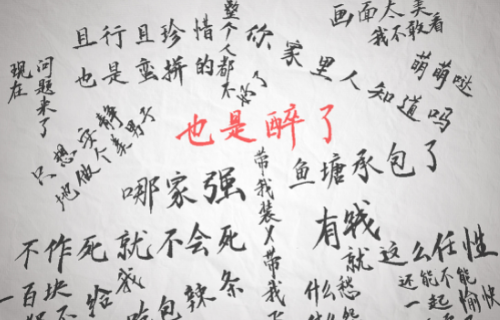 画面太美
我不敢看
整个人都不好了
且行且珍惜
也是蛮拼的
你家里人知道吗
萌萌哒
现在问题来了
只想安静
地做个美男子
也是醉了
哪家强
带我装X带我
鱼塘承包了
有钱
就这么任性
不作死就不会死
一百块
都不给我
吃包辣条
什么愁
什么怨
还能不能
一起愉快